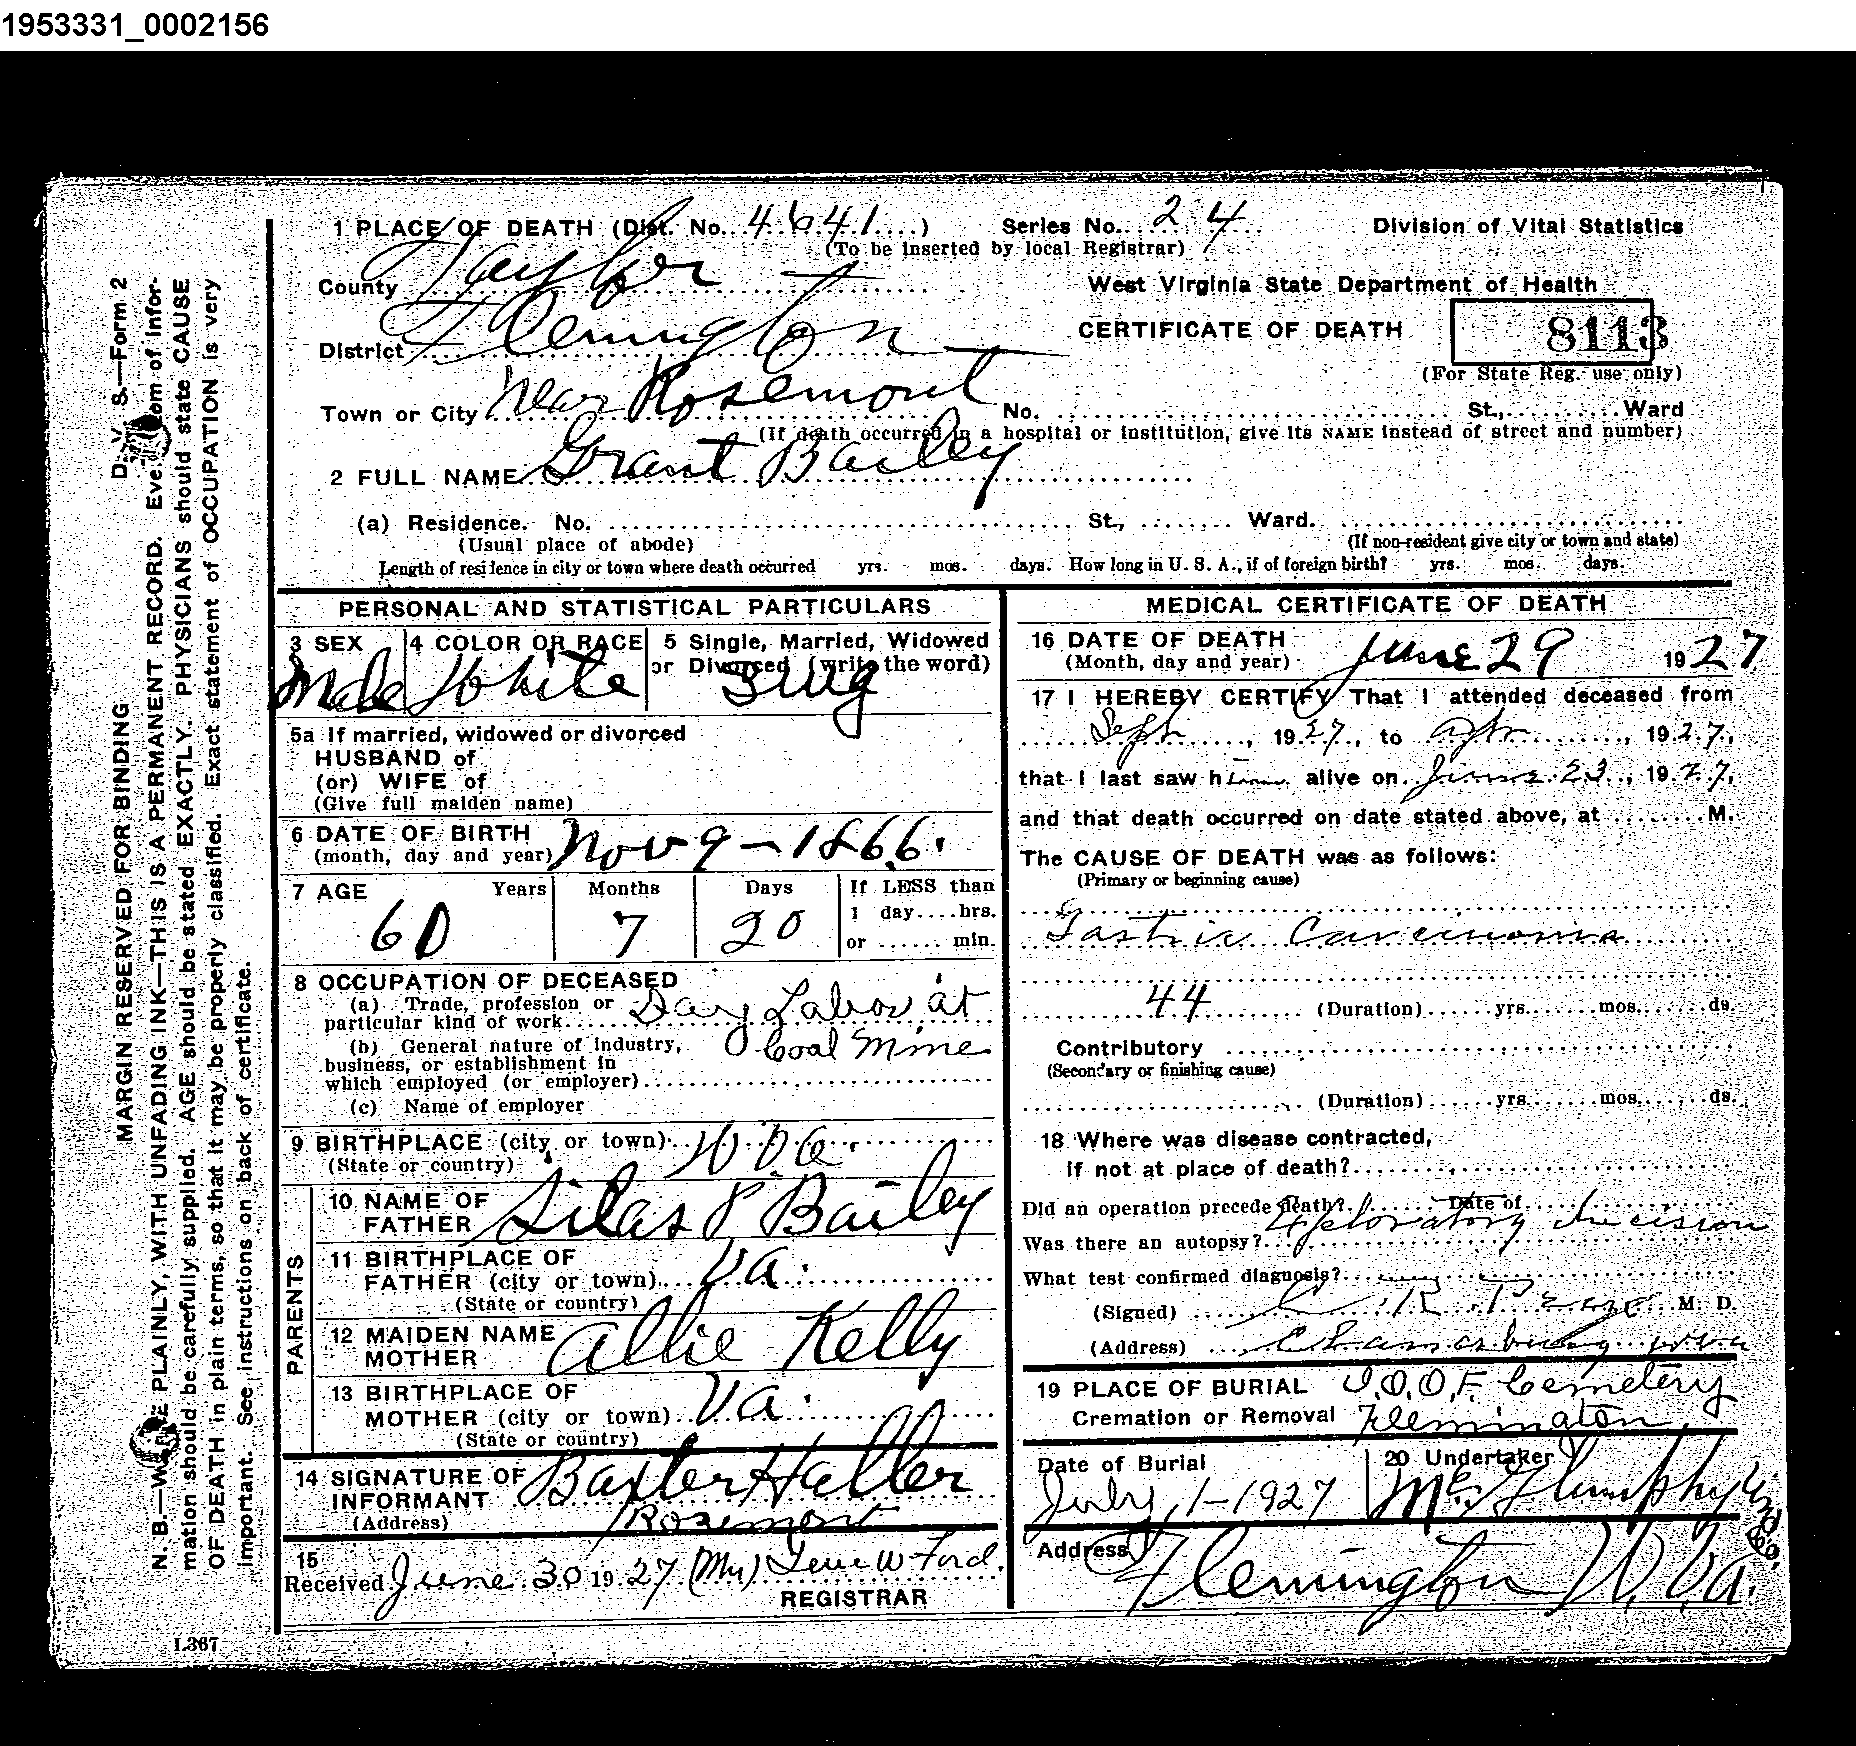 1953331_0002156
1 PLACE OF DEATH (Dist. No. 4641) Series No. 24 Division of Vital Statistics
(To be inserted by local Registrar)
County Taylor West Virginia State Department of Health
District Flemington CERTIFICATE OF DEATH 8113
(For State Reg. use only)
Town or City Near Rosemont No. St., Ward
(If death occurred in a hospital or institution, give its NAME instead of street and number)
2 FULL NAME Grant Bailey
(a) Residence. No. St., Ward.
(Usual place of abode) (If non-resident give city or town and state)
Length of residence in city or town where death occurred yrs. mos. days. How long in U. S. A., if of foreign birth? yrs. mos. days.
PERSONAL AND STATISTICAL PARTICULARS
3 SEX 4 COLOR OR RACE 5 Single, Married, Widowed
or Divorced (write the word)
Male White Sing
5a If married, widowed or divorced
HUSBAND of
(or) WIFE of
(Give full maiden name)
6 DATE OF BIRTH Nov 9 - 1866.
(month, day and year)
7 AGE Years Months Days If LESS than
1 day....hrs.
60 7 20 or ...... min.
8 OCCUPATION OF DECEASED
(a) Trade, profession or
particular kind of work Day Labor at
(b) General nature of industry, Coal Mine
business, or establishment in
which employed (or employer)
(c) Name of employer
9 BIRTHPLACE (city or town) W. Va.
(State or country)
PARENTS
10 NAME OF
FATHER Silas P. Bailey
11 BIRTHPLACE OF
FATHER (city or town) Va.
(State or country)
12 MAIDEN NAME
MOTHER Allie Kelly
13 BIRTHPLACE OF
MOTHER (city or town) Va.
(State or country)
14 SIGNATURE OF
INFORMANT Baxter Haller
(Address) Rosemont
15
Received June 30 1927 (Mrs) W. Ford.
REGISTRAR
MEDICAL CERTIFICATE OF DEATH
16 DATE OF DEATH
(Month, day and year) June 29 1927
17 I HEREBY CERTIFY That I attended deceased from
Sept, 1927, to Apr, 1927,
that I last saw him alive on June 23, 1927,
and that death occurred on date stated above, at M.
The CAUSE OF DEATH was as follows:
(Primary or beginning cause)
Gastric Carcinoma
44 (Duration) yrs. mos. ds.
Contributory
(Secondary or finishing cause)
(Duration) yrs. mos. ds.
18 Where was disease contracted,
if not at place of death?
Did an operation precede death? Date of
Exploratory Incision
Was there an autopsy?
What test confirmed diagnosis?
(Signed) C. R. M. D.
(Address) W Va
19 PLACE OF BURIAL I.O.O.F. Cemetery
Cremation or Removal Flemington,
Date of Burial 20 Undertaker
July, 1-1927
Address Flemington W. Va.
D. V. S.—Form 2
MARGIN RESERVED FOR BINDING
N. B.—WRITE PLAINLY, WITH UNFADING INK—THIS IS A PERMANENT RECORD. Every item of infor-
mation should be carefully supplied. AGE should be stated EXACTLY. PHYSICIANS should state CAUSE
OF DEATH in plain terms, so that it may be properly classified. Exact statement of OCCUPATION is very
important. See instructions on back of certificate.
L367